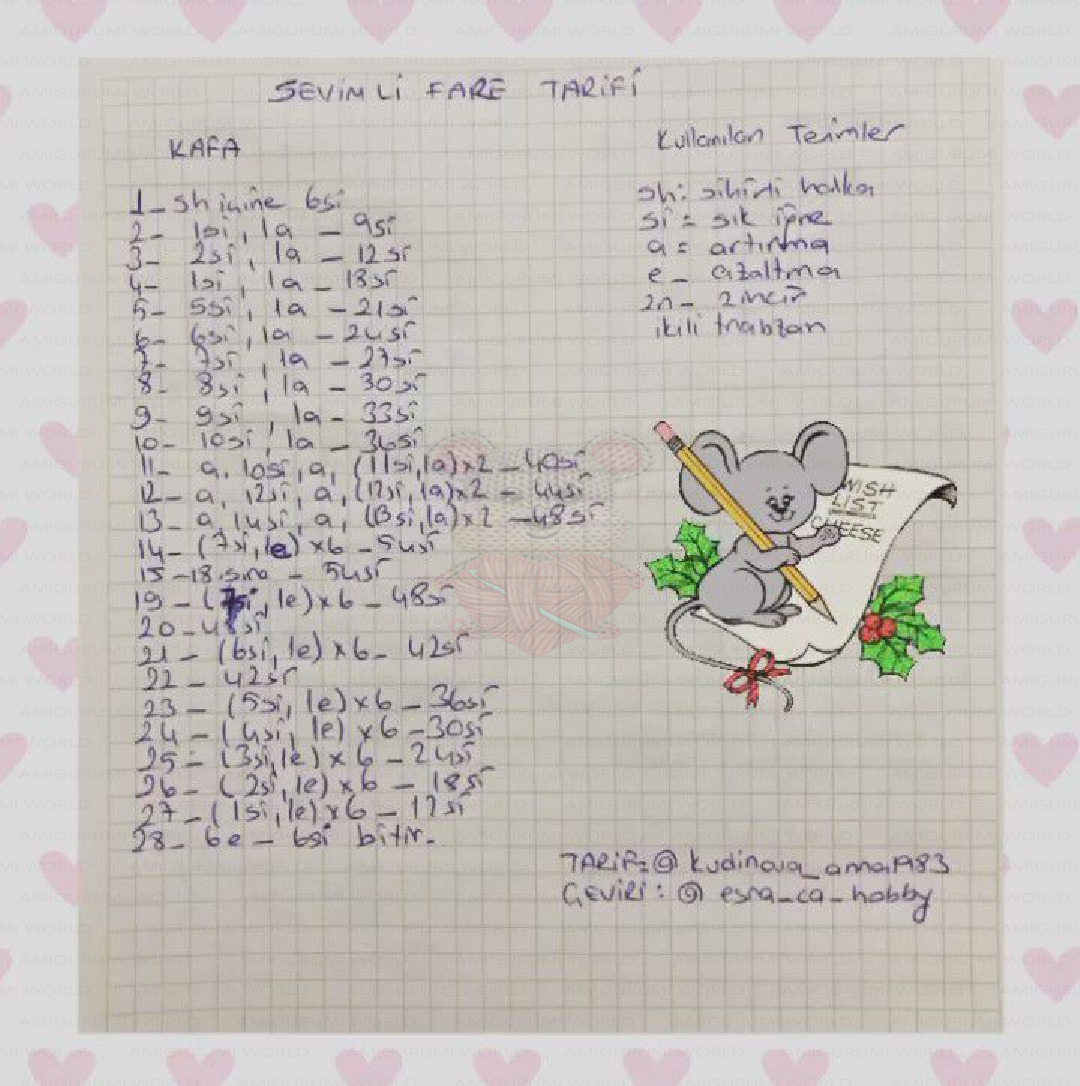 SEVİMLİ FARE TARİFİ
KAFA
1- sh içine 6si
2- 1si, 1a - 9si
3- 2si, 1a - 12si
4- 1si, 1a - 18si
5- 5si, 1a - 21si
6- 6si, 1a - 24si
7- 7si, 1a - 27si
8- 8si, 1a - 30si
9- 9si, 1a - 33si
10- 10si, 1a - 36si
11- a, 10si, a, (11si,1a)x2 - 40si
12- a, 12si, a, (12si,1a)x2 - 44si
13- a, 14si, a, (13si,1a)x2 - 48si
14- (7si,1e)x6 - 54si
15-18.sıra - 54si
19- (7si,1e)x6 - 48si
20- 48si
21- (6si,1e)x6- 42si
22- 42si
23- (5si,1e)x6 - 36si
24- (4si,1e)x6 - 30si
25- (3si,1e)x6 - 24si
26- (2si,1e)x6 - 18si
27- (1si,1e)x6 - 12si
28- 6e - 6si bitir.
Kullanılan Terimler
sh: sihirli halka
si = sık iğne
a = artırma
e - azaltma
zn- zincir
ikili trabzan
WISH
LIST
CHEESE
TARİF: @ kudinova_anna1983
ÇEVİRİ: @ esra_ca_hobby
AMIGURUMI WORLD